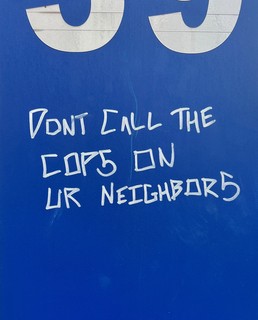 DONT CALL THE
COPS ON
UR NEIGHBORS